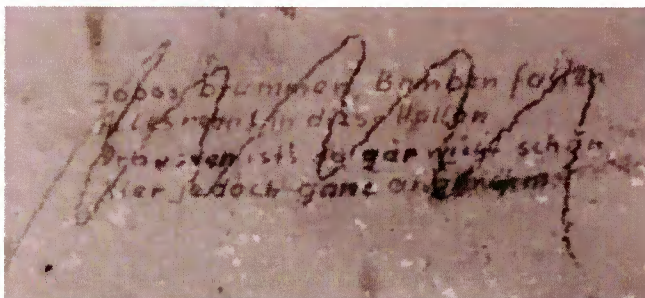 Jabos brummen, Bomben fallen
Alles rennt in diese Hallen
Draussen ist's so gar nicht schön
Hier jedoch ganz angenehm